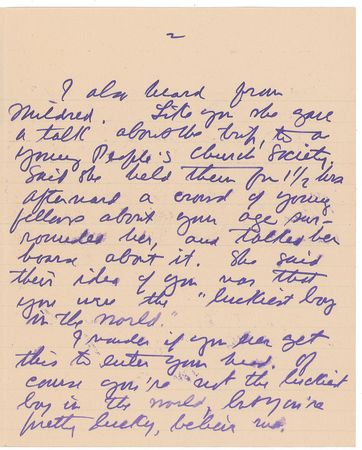 2
I also heard from
Mildred. Like you she gave
a talk about the trip, to a
Young People's Church Society.
Said she held them for 1½ hrs
afterward a crowd of young
fellows about your age sur-
rounded her, and talked her
board about it. She said
their idea of you was that
you were the "luckiest boy
in the world."
I wonder if you ever get
this to enter your head. Of
course you're not the luckiest
boy in the world, but you're
pretty lucky, believe me.